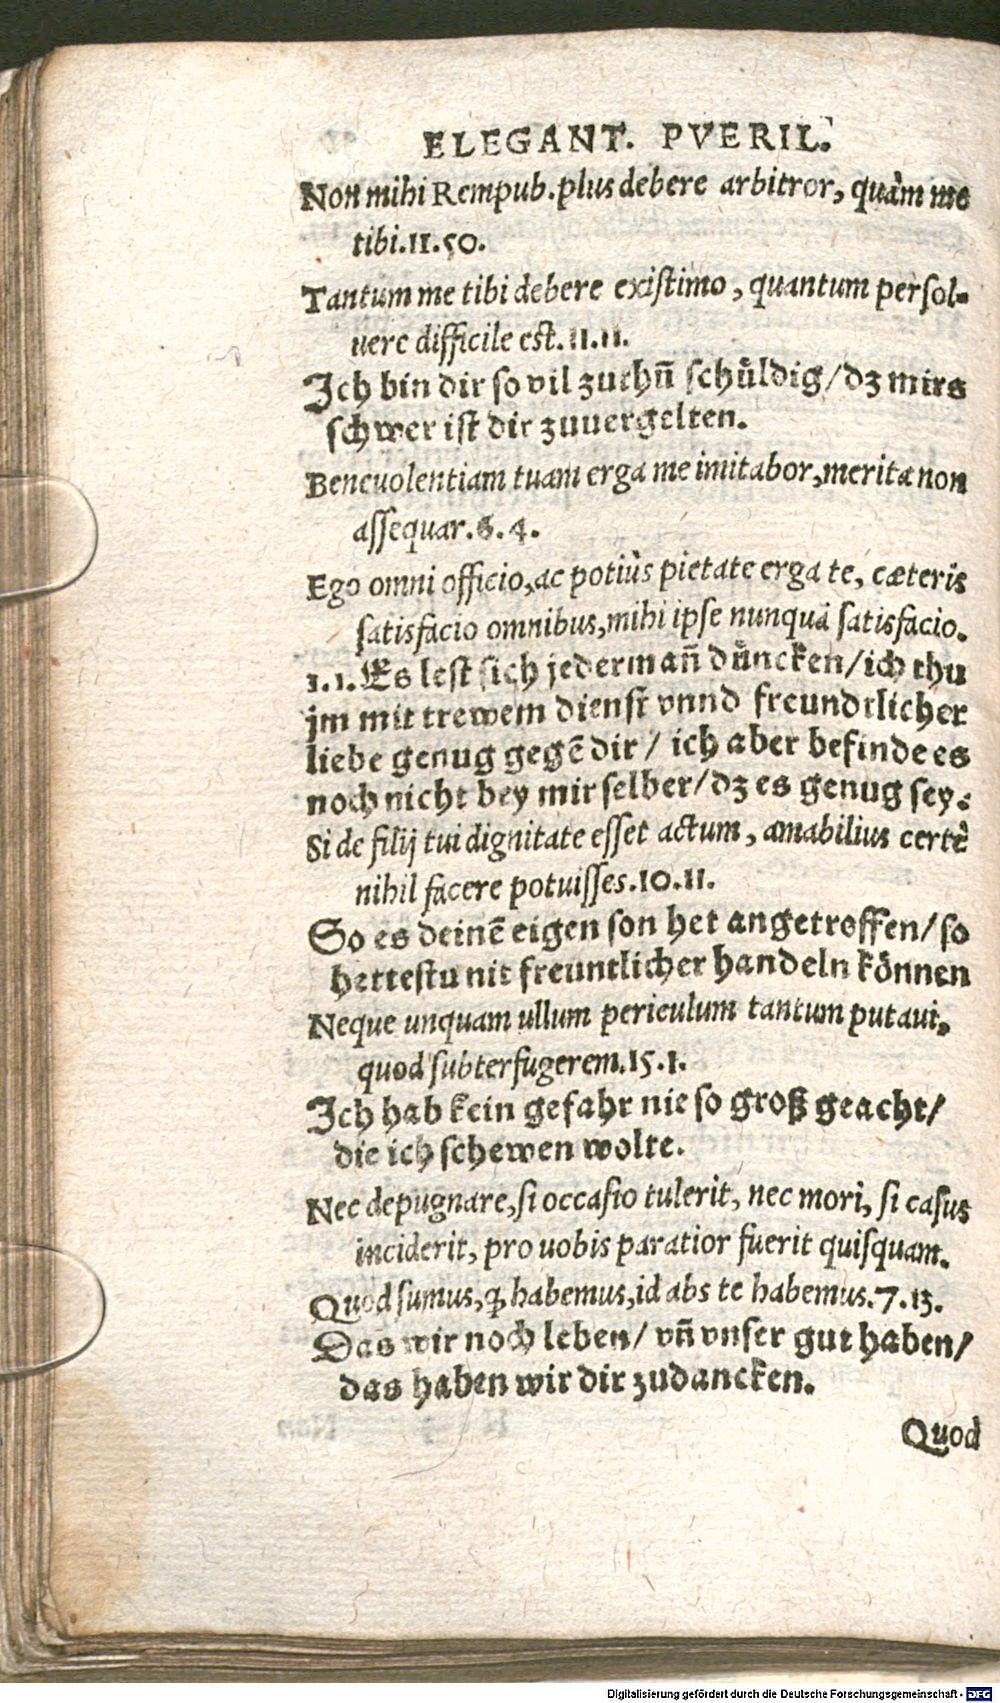 ELEGANT. PVERIL.
Non mihi Rempub. plus debere arbitror, quàm me
tibi. 11. 50.
Tantum me tibi debere existimo, quantum persol-
uere difficile est. 11. 11.
Ich bin dir so vil zuthuñ schüldig/ dz mirs
schwer ist dir zuuergelten.
Beneuolentiam tuam erga me imitabor, merita non
assequar. 6. 4.
Ego omni officio, ac potiùs pietate erga te, cæteris
satisfacio omnibus, mihi ipse nunquā satisfacio.
1. 1. Es lest sich jedermañ düncken/ ich thu
jm mit trewem dienst vnnd freundtlicher
liebe genug gegē dir / ich aber befinde es
noch nicht bey mir selber/ dz es genug sey.
Si de filij tui dignitate esset actum, amabilius certè
nihil facere potuisses. 10. 11.
So es deinē eigen son het angetroffen/ so
hettestu nit freuntlicher handeln können
Neque unquam ullum periculum tantum putaui,
quod subterfugerem. 15. 1.
Ich hab kein gefahr nie so groß geacht/
die ich schewen wolte.
Nec depugnare, si occasio tulerit, nec mori, si casus
inciderit, pro uobis paratior fuerit quisquam.
Quod sumus, ꝙ habemus, id abs te habemus. 7. 13.
Das wir noch leben/ vñ vnser gut haben/
das haben wir dir zudancken.
Quod
Digitalisierung gefördert durch die Deutsche Forschungsgemeinschaft - DFG